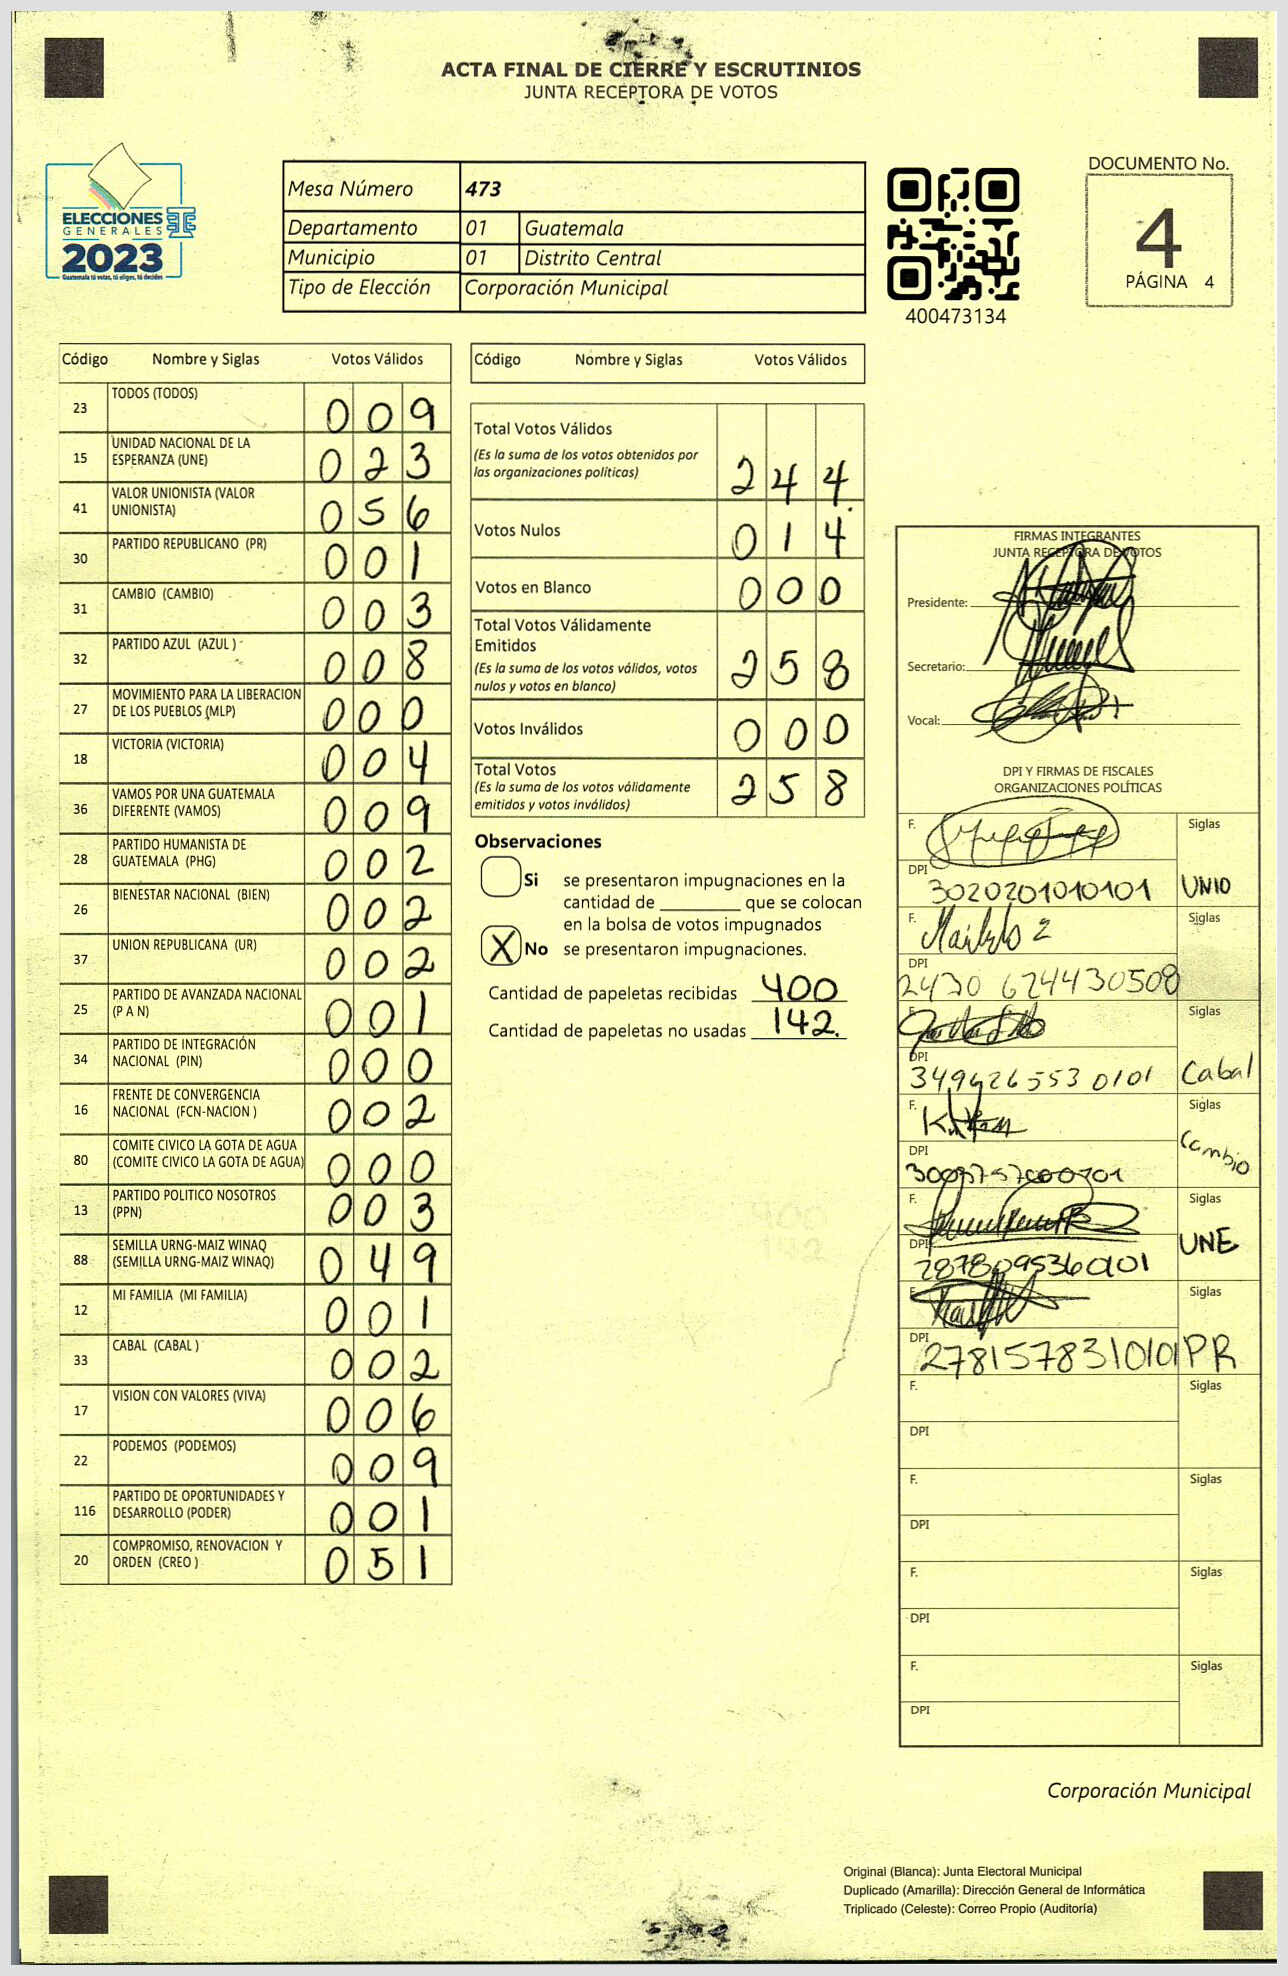 ACTA FINAL DE CIERRE Y ESCRUTINIOS
JUNTA RECEPTORA DE VOTOS
ELECCIONES
GENERALES
2023
Guatemala tú votas, tú eliges, tú decides
Mesa Número 473
Departamento 01 Guatemala
Municipio 01 Distrito Central
Tipo de Elección Corporación Municipal
400473134
DOCUMENTO No.
4
PÁGINA 4
Código Nombre y Siglas Votos Válidos
23 TODOS (TODOS) 0 0 9
15 UNIDAD NACIONAL DE LA
ESPERANZA (UNE) 0 2 3
41 VALOR UNIONISTA (VALOR
UNIONISTA) 0 5 6
30 PARTIDO REPUBLICANO (PR) 0 0 1
31 CAMBIO (CAMBIO) 0 0 3
32 PARTIDO AZUL (AZUL ) 0 0 8
27 MOVIMIENTO PARA LA LIBERACION
DE LOS PUEBLOS (MLP) 0 0 0
18 VICTORIA (VICTORIA) 0 0 4
36 VAMOS POR UNA GUATEMALA
DIFERENTE (VAMOS) 0 0 9
28 PARTIDO HUMANISTA DE
GUATEMALA (PHG) 0 0 2
26 BIENESTAR NACIONAL (BIEN) 0 0 2
37 UNION REPUBLICANA (UR) 0 0 2
25 PARTIDO DE AVANZADA NACIONAL
(P A N) 0 0 1
34 PARTIDO DE INTEGRACIÓN
NACIONAL (PIN) 0 0 0
16 FRENTE DE CONVERGENCIA
NACIONAL (FCN-NACION ) 0 0 2
80 COMITE CIVICO LA GOTA DE AGUA
(COMITE CIVICO LA GOTA DE AGUA) 0 0 0
13 PARTIDO POLITICO NOSOTROS
(PPN) 0 0 3
88 SEMILLA URNG-MAIZ WINAQ
(SEMILLA URNG-MAIZ WINAQ) 0 4 9
12 MI FAMILIA (MI FAMILIA) 0 0 1
33 CABAL (CABAL ) 0 0 2
17 VISION CON VALORES (VIVA) 0 0 6
22 PODEMOS (PODEMOS) 0 0 9
116 PARTIDO DE OPORTUNIDADES Y
DESARROLLO (PODER) 0 0 1
20 COMPROMISO, RENOVACION Y
ORDEN (CREO ) 0 5 1
Código Nombre y Siglas Votos Válidos
Total Votos Válidos
(Es la suma de los votos obtenidos por
las organizaciones políticas) 2 4 4
Votos Nulos 0 1 4
Votos en Blanco 0 0 0
Total Votos Válidamente
Emitidos
(Es la suma de los votos válidos, votos
nulos y votos en blanco) 2 5 8
Votos Inválidos 0 0 0
Total Votos
(Es la suma de los votos válidamente
emitidos y votos inválidos) 2 5 8
Observaciones
Si se presentaron impugnaciones en la
cantidad de ________ que se colocan
en la bolsa de votos impugnados
X No se presentaron impugnaciones.
Cantidad de papeletas recibidas 400
Cantidad de papeletas no usadas 142.
FIRMAS INTEGRANTES
JUNTA RECEPTORA DE VOTOS
Presidente:
Secretario:
Vocal:
DPI Y FIRMAS DE FISCALES
ORGANIZACIONES POLÍTICAS
F. Siglas
DPI 3020201010101 UNIO
F. Siglas
DPI 2430 624430508
F. Siglas
DPI 349426553 0101 Cabal
F. Siglas
DPI Cambio
F. Siglas
DPI UNE
F. Siglas
DPI 2781578310101 PR
F. Siglas
DPI
F. Siglas
DPI
F. Siglas
DPI
F. Siglas
DPI
Corporación Municipal
Original (Blanca): Junta Electoral Municipal
Duplicado (Amarilla): Dirección General de Informática
Triplicado (Celeste): Correo Propio (Auditoría)